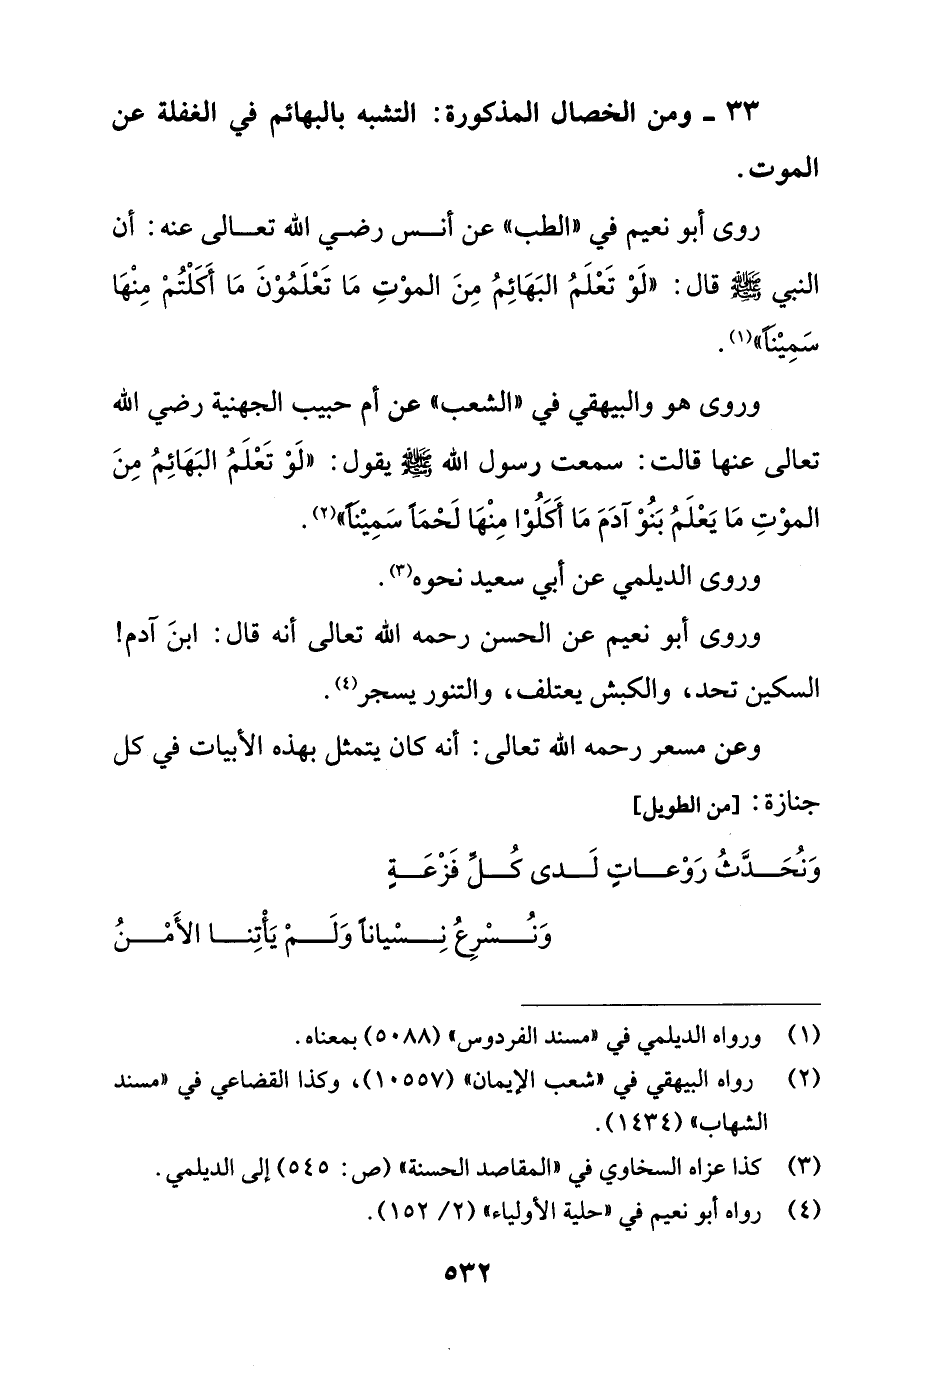 ٣٣ ـ ومن الخصال المذكورة: التشبه بالبهائم في الغفلة عن
الموت.
روى أبو نعيم في «الطب» عن أنس رضي الله تعالى عنه: أن
النبي ﷺ قال: «لَوْ تَعْلَمُ البَهَائِمُ مِنَ الموْتِ مَا تَعْلَمُوْنَ مَا أَكَلْتُمْ مِنْهَا
سَمِيْناً»(١).
وروى هو والبيهقي في «الشعب» عن أم حبيب الجهنية رضي الله
تعالى عنها قالت: سمعت رسول الله ﷺ يقول: «لَوْ تَعْلَمُ البَهَائِمُ مِنَ
الموْتِ مَا يَعْلَمُ بَنُوْ آدَمَ مَا أَكَلُوْا مِنْهَا لَحْمَاً سَمِيْنَاً»(٢).
وروى الديلمي عن أبي سعيد نحوه(٣).
وروى أبو نعيم عن الحسن رحمه الله تعالى أنه قال: ابنَ آدم!
السكين تحد، والكبش يعتلف، والتنور يسجر(٤).
وعن مسعر رحمه الله تعالى: أنه كان يتمثل بهذه الأبيات في كل
جنازة: [من الطويل]
وَنُحَدَّثُ رَوْعاتٍ لَدى كُلِّ فَزْعَةٍ
وَنُسْرِعُ نِسْياناً وَلَمْ يَأْتِنا الأَمْنُ
(١) ورواه الديلمي في «مسند الفردوس» (٥٠٨٨) بمعناه.
(٢) رواه البيهقي في «شعب الإيمان» (١٠٥٥٧)، وكذا القضاعي في «مسند
الشهاب» (١٤٣٤).
(٣) كذا عزاه السخاوي في «المقاصد الحسنة» (ص: ٥٤٥) إلى الديلمي.
(٤) رواه أبو نعيم في «حلية الأولياء» (٢/ ١٥٢).
٥٣٢